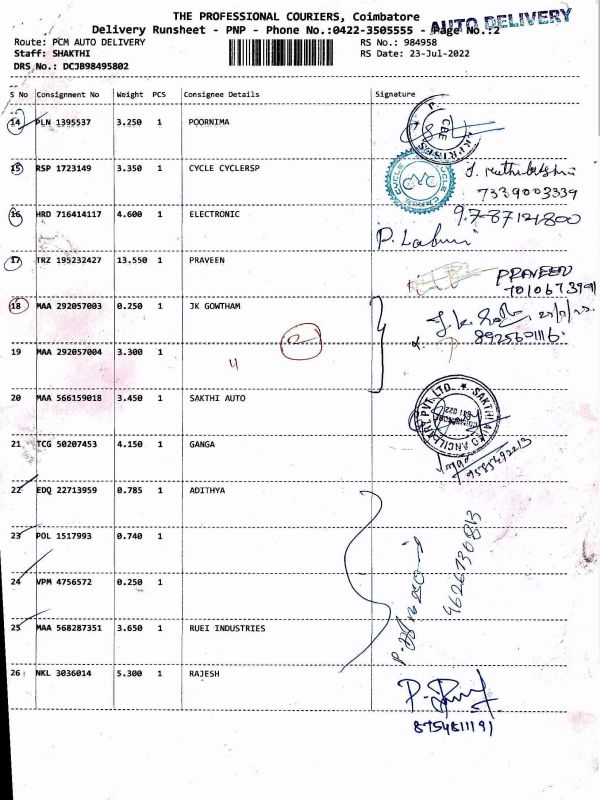 THE PROFESSIONAL COURIERS, Coimbatore
AUTO DELIVERY
Delivery Runsheet - PNP - Phone No.:0422-3505555 - Page No.:2
Route: PCM AUTO DELIVERY RS No.: 984958
Staff: SHAKTHI RS Date: 23-Jul-2022
DRS No.: DCJB98495802
S No Consignment No Weight PCS Consignee Details Signature
14 PLN 1395537 3.250 1 POORNIMA
15 RSP 1723149 3.350 1 CYCLE CYCLERSP
7339003339
16 HRD 716414117 4.600 1 ELECTRONIC
17 TRZ 195232427 13.550 1 PRAVEEN PRAVEEN
18 MAA 292057003 0.250 1 JK GOWTHAM
19 MAA 292057004 3.300 1
4
20 MAA 566159018 3.450 1 SAKTHI AUTO
21 TCG 50207453 4.150 1 GANGA
9585492213
22 EDQ 22713959 0.785 1 ADITHYA
23 POL 1517993 0.740 1
24 VPM 4756572 0.250 1
25 MAA 568287351 3.650 1 RUEI INDUSTRIES
26 NKL 3036014 5.300 1 RAJESH
8754811191